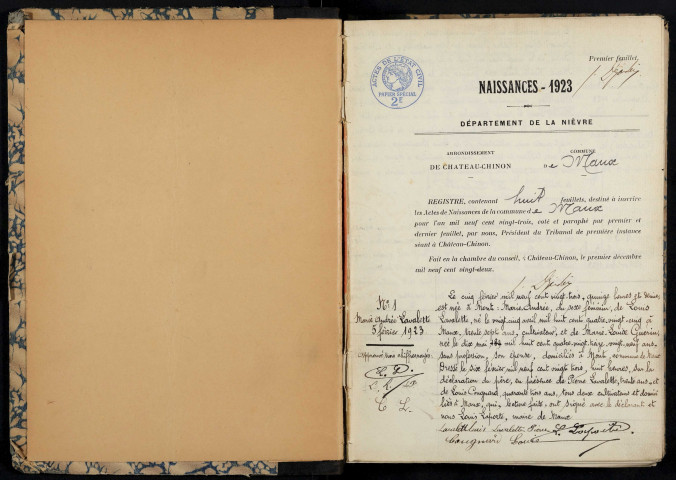 Premier feuillet
ACTES DE L'ÉTAT CIVIL
PAPIER SPÉCIAL
2F
NAISSANCES - 1923
DÉPARTEMENT DE LA NIÈVRE
ARRONDISSEMENT
COMMUNE
DE CHATEAU-CHINON
De Maux
REGISTRE, contenant huit feuillets, destiné à inscrire
les Actes de Naissances de la commune de Maux
pour l'an mil neuf cent vingt-trois, coté et paraphé par premier et
dernier feuillet, par nous, Président du Tribunal de première instance
séant à Château-Chinon.
Fait en la chambre du conseil, à Château-Chinon, le premier décembre
mil neuf cent vingt-deux.
No 1
Marie Andrée Lavalette
5 février 1923
Le cinq février mil neuf cent vingt trois, quinze heures
est née à Mont: Marie Andrée, du sexe féminin, de Louis
Lavalette, né le vingt mil huit cent quatre vingt cinq à
Maux, trente sept ans, cultivateur, et de Marie Louise
née le dix mai mil huit cent quatre vingt treize, vingt neuf ans,
sans profession, son épouse, domiciliés à Mont, commune de Maux
Dressé le six février mil neuf cent vingt trois, huit heures, sur la
déclaration du père, en présence de Pierre Lavalette, trente ans, et
de Louis quarante trois ans, tous deux cultivateurs et domici
liés à Maux, qui, lecture faite, ont signé avec le déclarant et
nous Louis Laporte, maire de Maux
Lavalette Louis Lavalette Pierre L. Laporte
L. L.